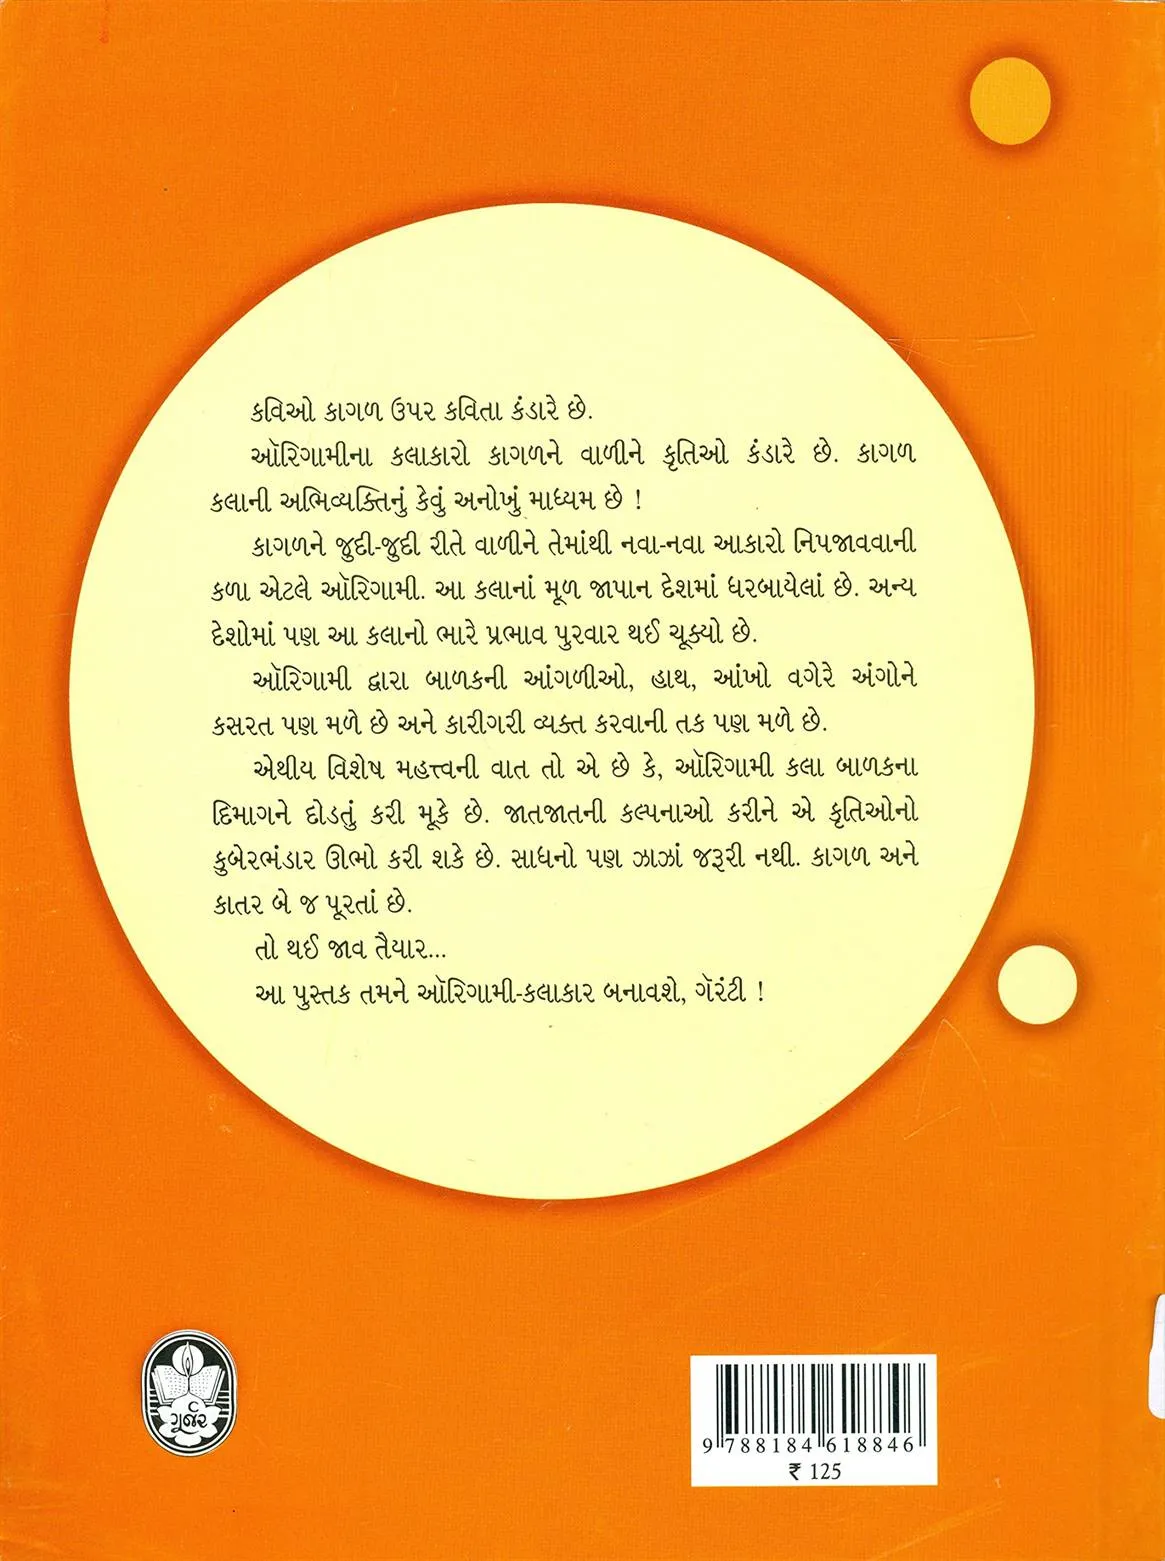 કવિઓ કાગળ ઉપર કવિતા કંડારે છે.
ઑરિગામીના કલાકારો કાગળને વાળીને કૃતિઓ કંડારે છે. કાગળ
કલાની અભિવ્યક્તિનું કેવું અનોખું માધ્યમ છે !
કાગળને જુદી-જુદી રીતે વાળીને તેમાંથી નવા-નવા આકારો નિપજાવવાની
કળા એટલે ઑરિગામી. આ કલાનાં મૂળ જાપાન દેશમાં ધરબાયેલાં છે. અન્ય
દેશોમાં પણ આ કલાનો ભારે પ્રભાવ પુરવાર થઈ ચૂક્યો છે.
ઑરિગામી દ્વારા બાળકની આંગળીઓ, હાથ, આંખો વગેરે અંગોને
કસરત પણ મળે છે અને કારીગરી વ્યક્ત કરવાની તક પણ મળે છે.
એથીય વિશેષ મહત્ત્વની વાત તો એ છે કે, ઑરિગામી કલા બાળકના
દિમાગને દોડતું કરી મૂકે છે. જાતજાતની કલ્પનાઓ કરીને એ કૃતિઓનો
કુબેરભંડાર ઊભો કરી શકે છે. સાધનો પણ ઝાઝાં જરૂરી નથી. કાગળ અને
કાતર બે જ પૂરતાં છે.
તો થઈ જાવ તૈયાર...
આ પુસ્તક તમને ઑરિગામી-કલાકાર બનાવશે, ગૅરંટી !
ગૂર્જર
9 788184 618846
₹ 125